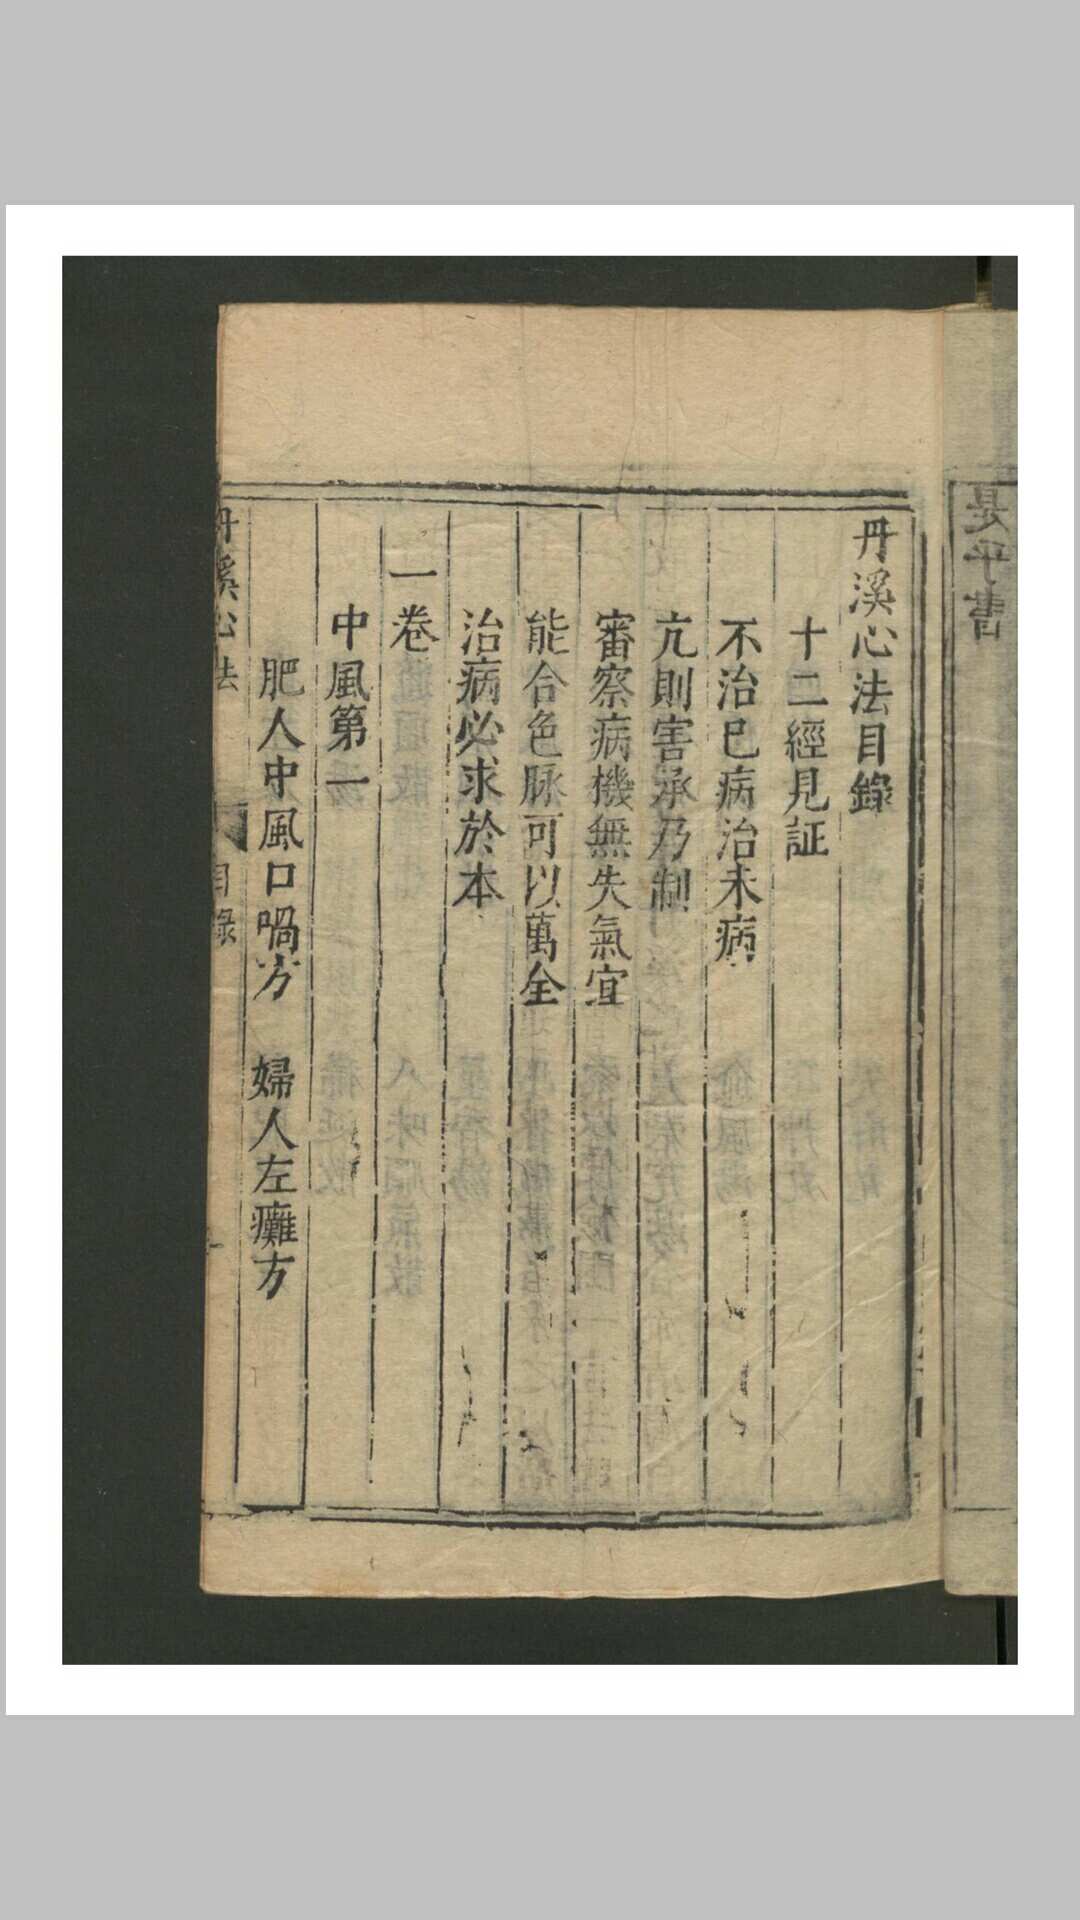 丹溪心法目錄
十二經見証
不治已病治未病
亢則害承乃制
審察病機無失氣宜
能合色脉可以萬全
治病必求於本
一卷
中風第一
肥人中風口喎方　婦人左癱方
丹溪心法　目錄　一
是乎書